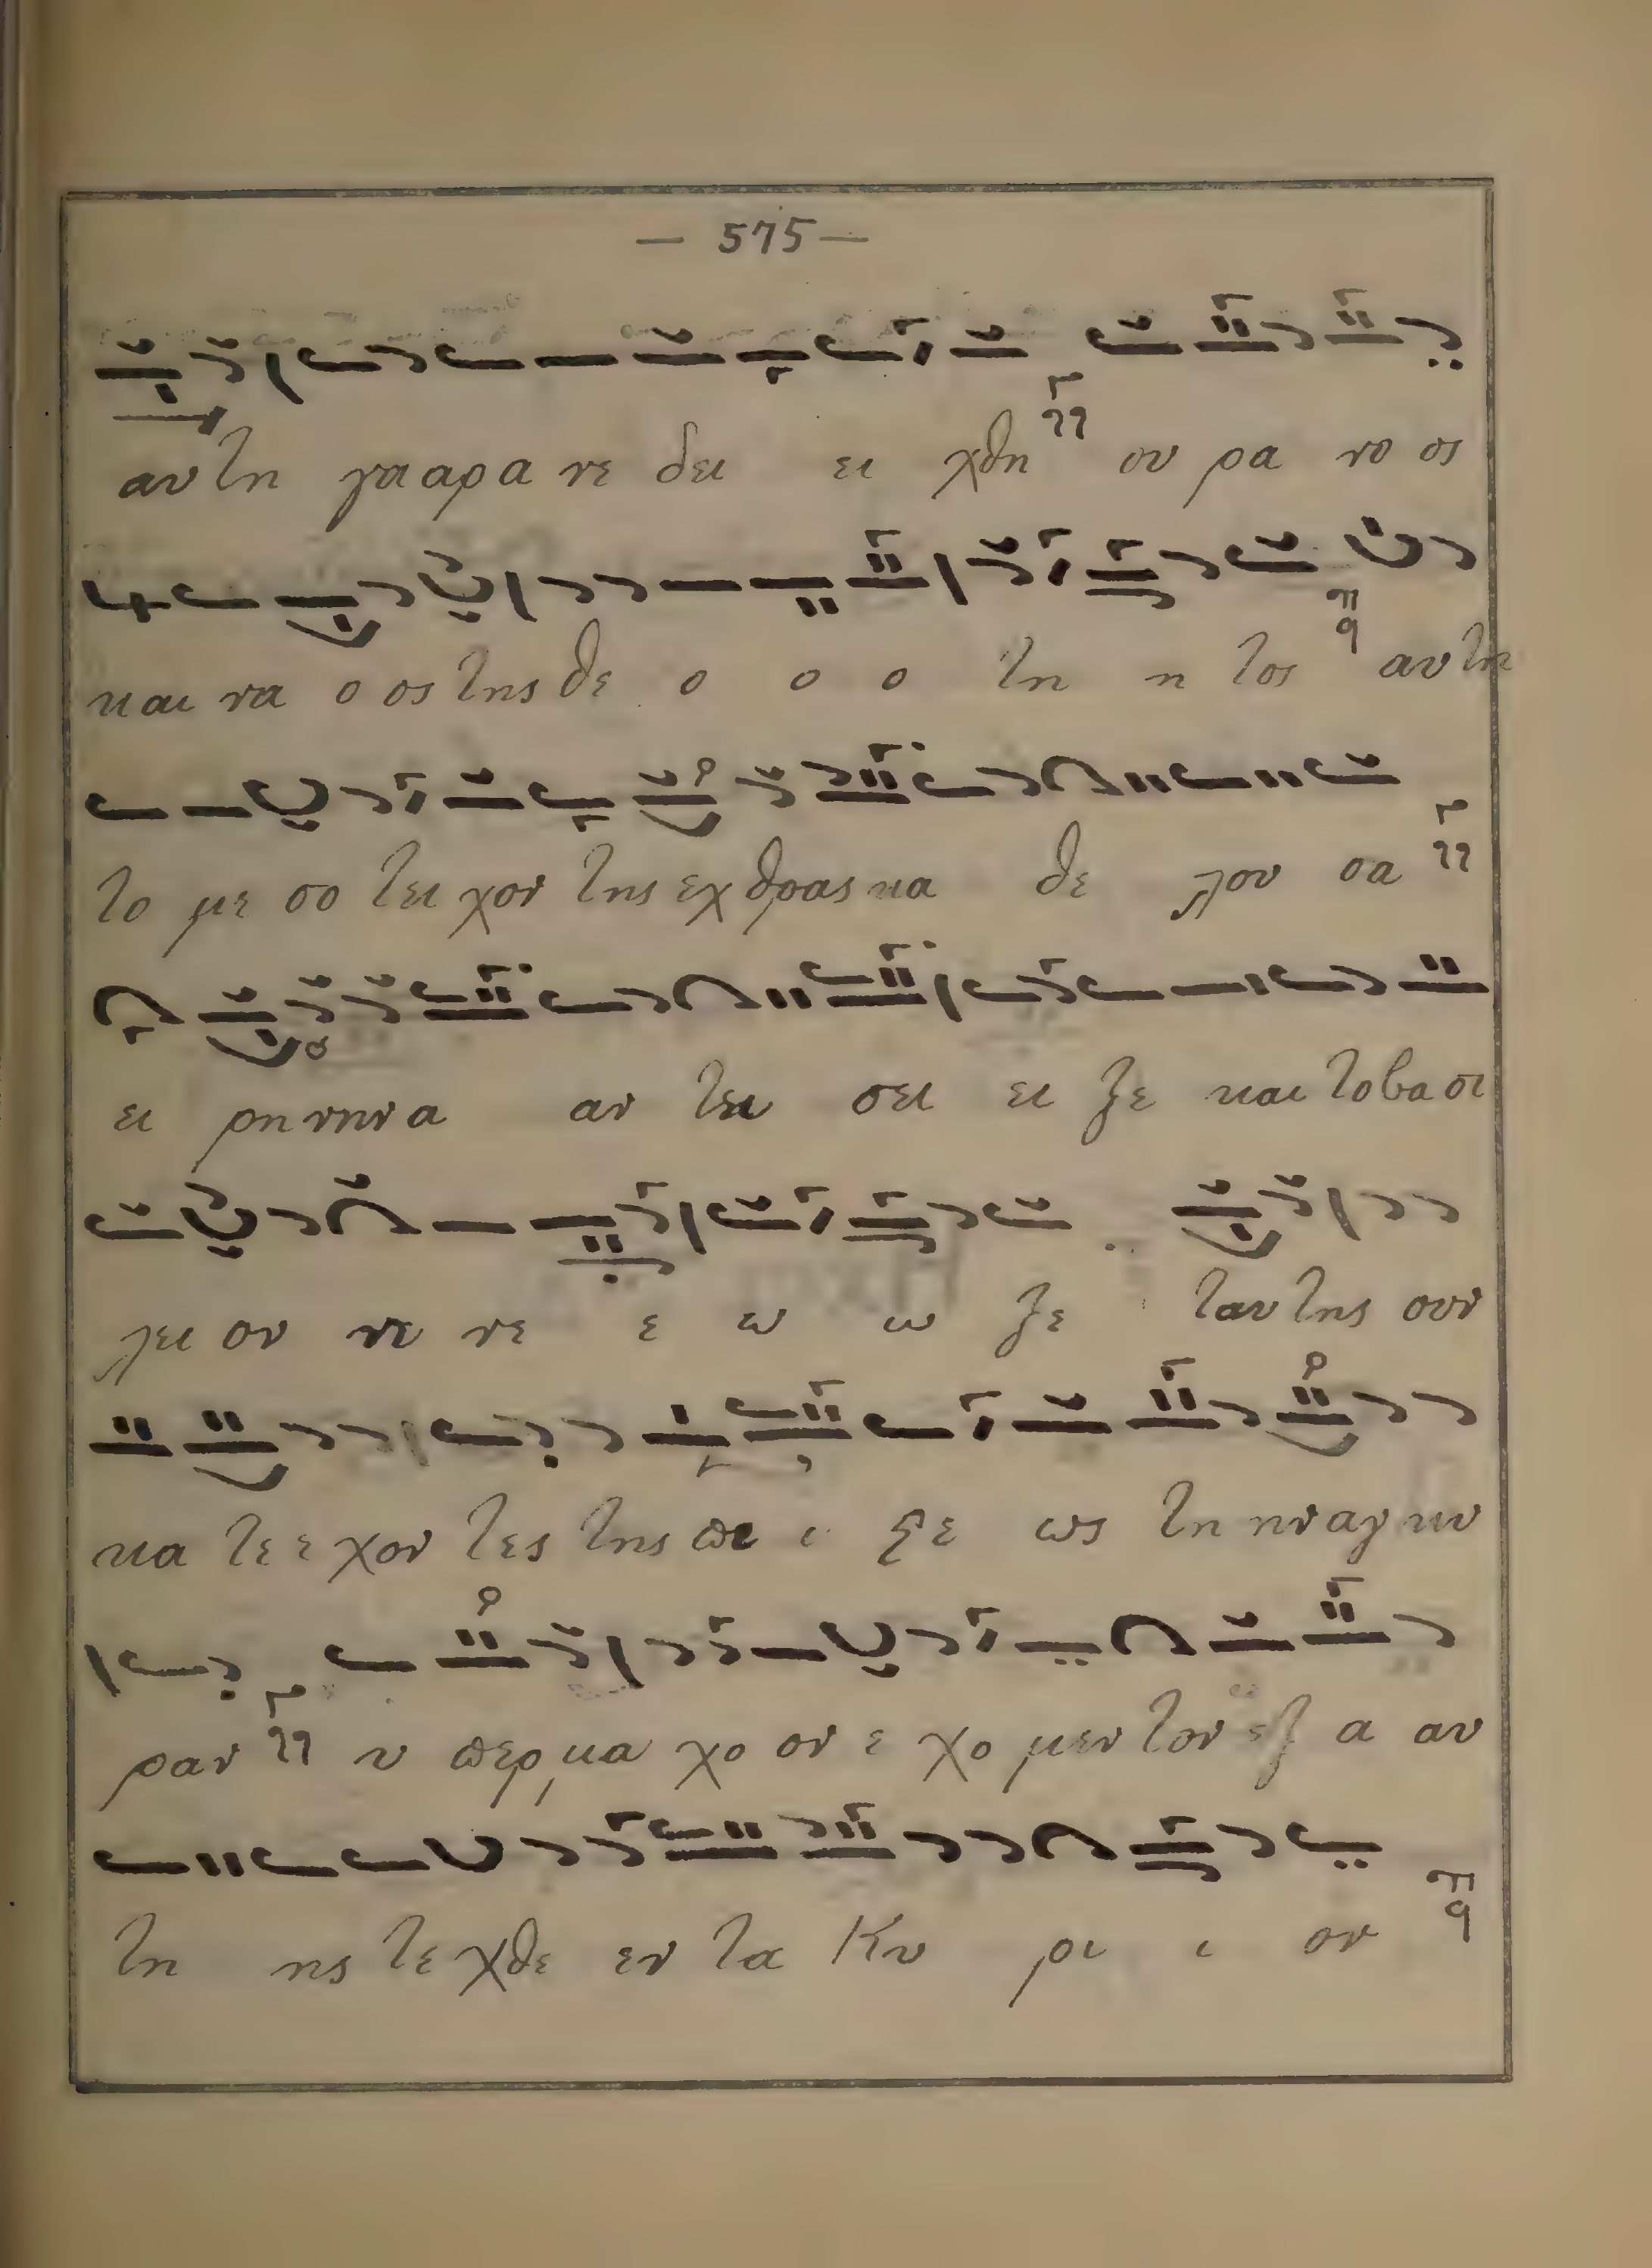 — 575 —
αυ τη γα αρ α νε δει ει χθη ου ρα νο ος
και να ο ος της θε ο ο ο τη η τος αυ τη
το με σο τει χον της εχ θρας κα θε λου σα
ει ρη νην α αν τει σει ει ξε και το βα σι
λει ον νε νε ε ω ω ξε ταυ της ουν
κα τε ε χον τες της πι ι ξε ως την η αγ κυ
ραν υ περ μα χο ον ε χο μεν τον εξ α αυ
τη ης τε χθε εν τα Κυ ρι ι ον